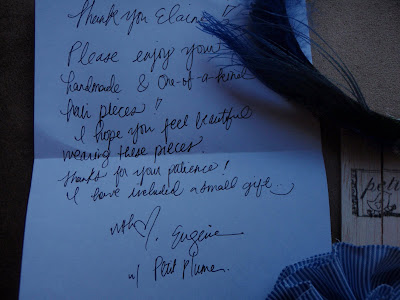 Thank you Elaine ♡
Please enjoy your
handmade & one-of-a-kind
hair pieces ♡
I hope you feel beautiful
wearing these pieces
thanks for your patience!
I have included a small gift...
with ♡, Eugenie
w/ Petit Plume.
petit